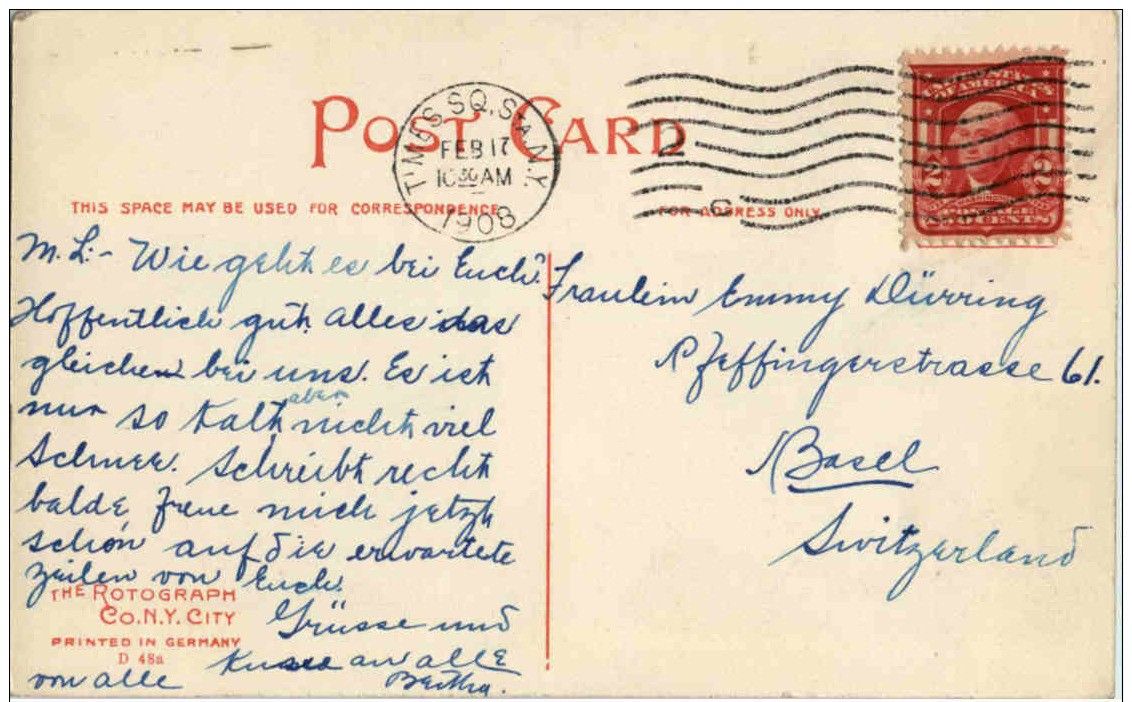 POST CARD
TIMES SQ. STA. N.Y.
FEB 17
10 30 AM
1908
THIS SPACE MAY BE USED FOR CORRESPONDENCE
FOR ADDRESS ONLY
2 2
M. L:- Wie geht es bei Euch?
Hoffentlich gut. alles das
gleichen bei uns. Es ist
nur so kalt aber nicht viel
Schnee. Schreibt recht
balde freue mich jetzt
schon auf die erwartete
Zeilen von Euch.
Grüsse und
Küsse an alle
von alle Bertha.
Fraulein Emmy Dürring
Pfeffingerstrasse 61.
Basel
Switzerland
THE ROTOGRAPH
CO. N.Y. CITY
PRINTED IN GERMANY
D 48a